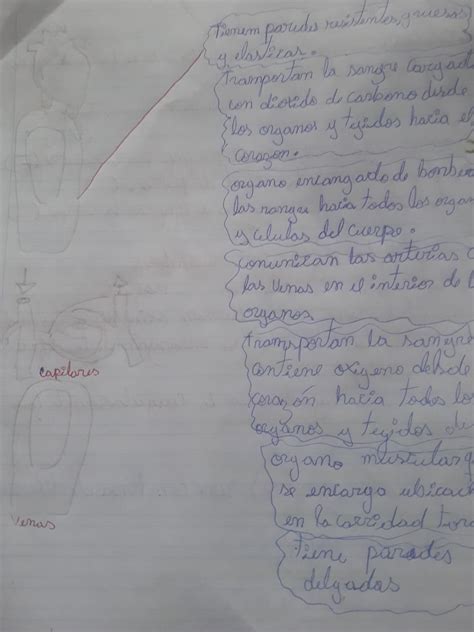 tienem paredes resistentes, gruesos
y elasticas.
tramportan la sangre cargada
con dioxido de carbono desde
los organos y tejidos hacia el
corazon.
organo encargado de bombear
las sangre hacia todos los organ
y celulas del cuerpo.
comunican las arterias c
las venas en el interior de l
organos
tramportan la sangre
contiene oxigeno desde
corazón hacia todos los
organos y tejidos de
organo muscular q
se encarga ubicad
en la carridad tora
tiene paredes
delgadas
capilares
venas